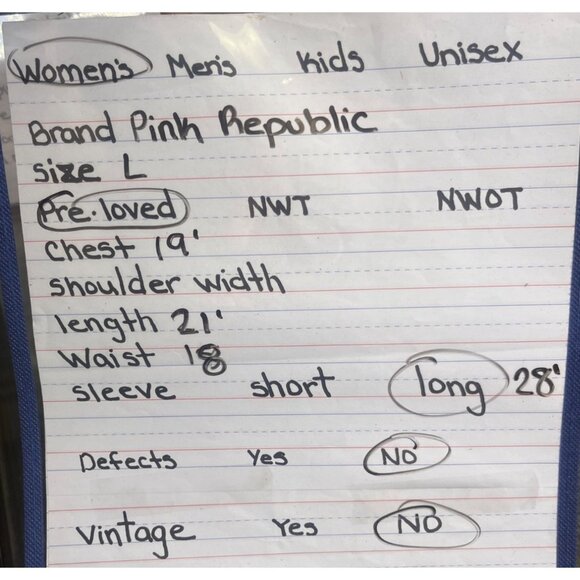 Women's Men's Kids Unisex
Brand Pink Republic
size L
Pre-loved NWT NWOT
Chest 19'
shoulder width
length 21'
Waist 18
sleeve short long 28'
Defects Yes NO
Vintage Yes NO